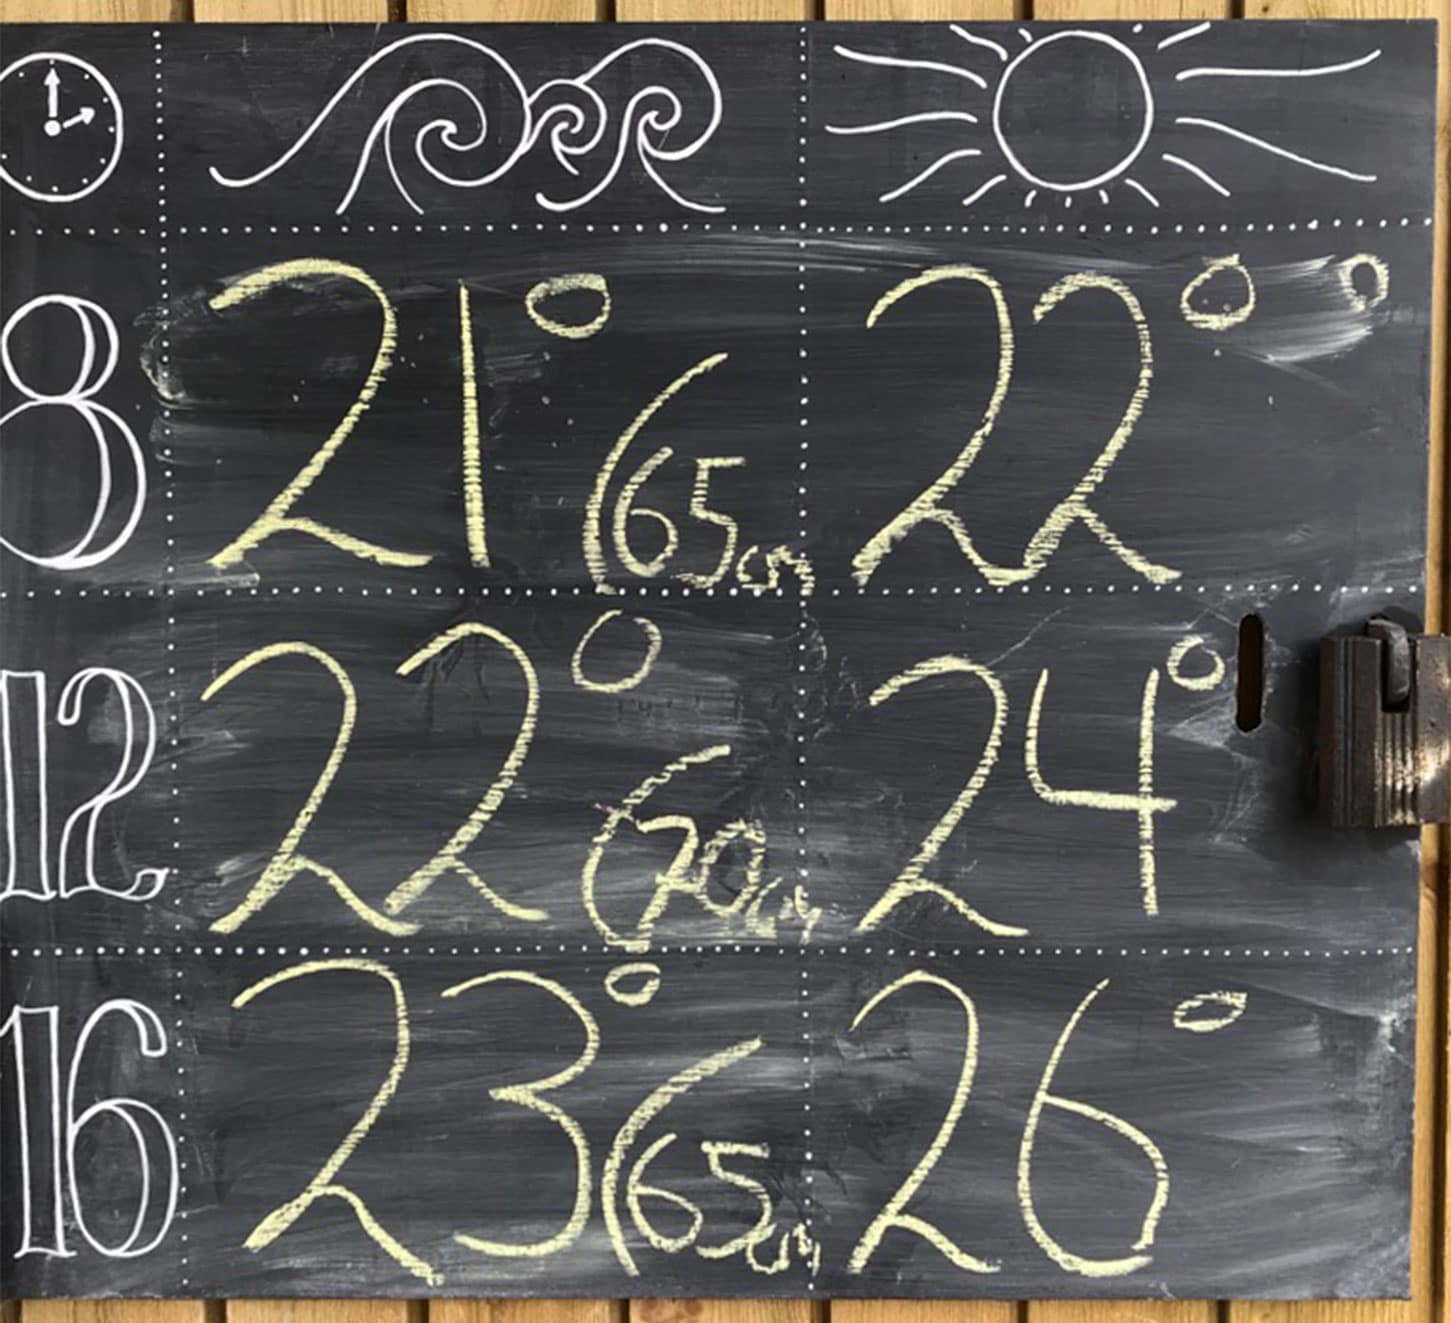 8 21° (65cm 22°
12 22° (70cm 24°
16 23° (65cm 26°